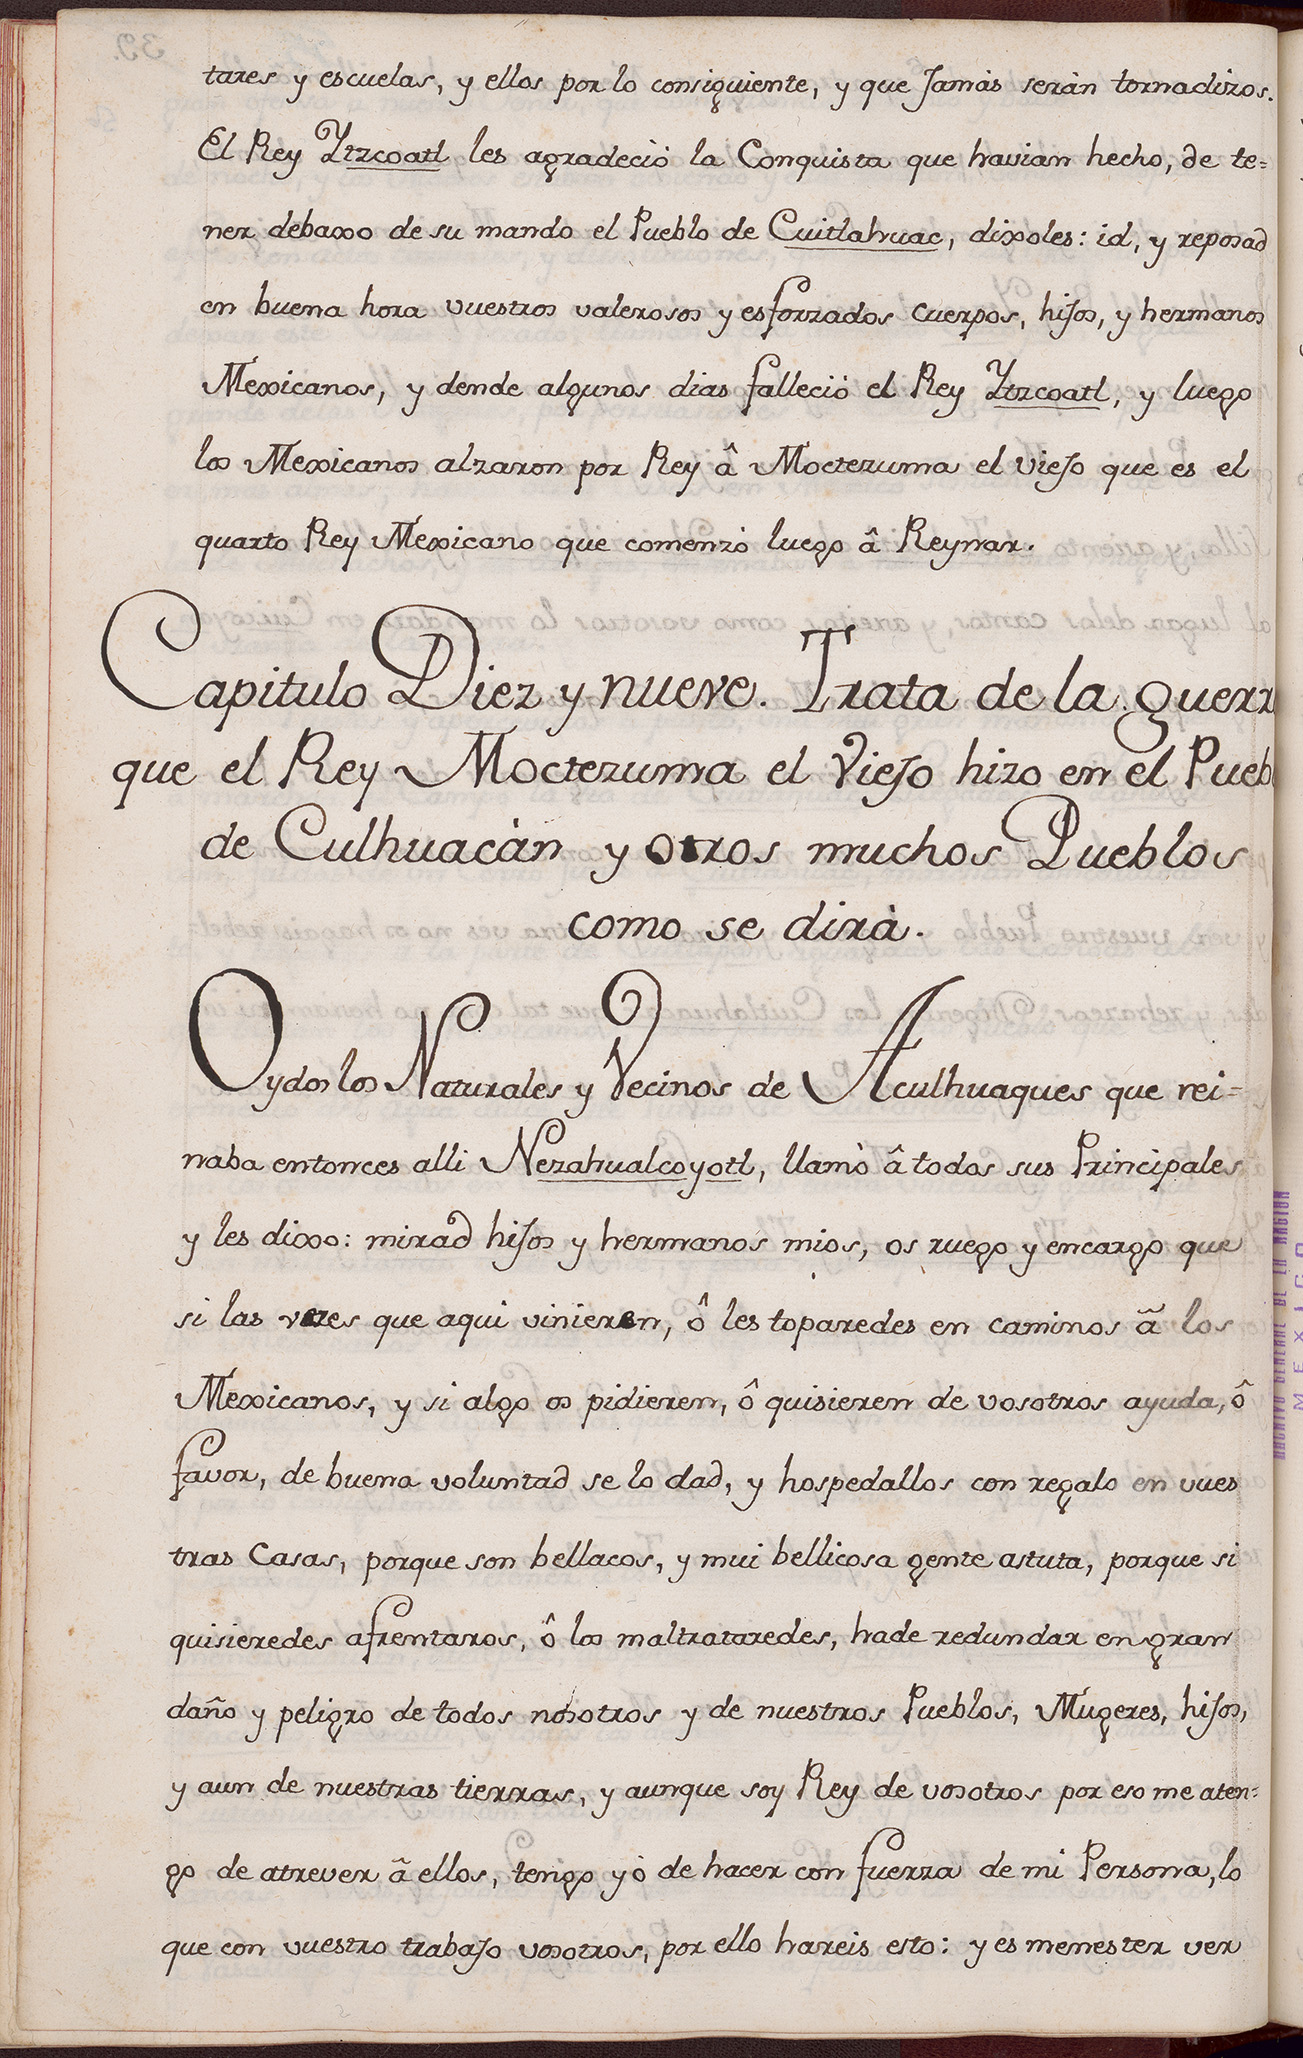 tares y escuelas, y ellos por lo consiguiente, y que Jamàs seràn tornadizos.
El Rey Ytzcoatl les agradeciò la Conquista que havian hecho, de te=
ner debaxo de su mando el Pueblo de Cuitlahuac, dixoles: id, y reposad
en buena hora vuestros valerosos y esforzados cuerpos, hijos, y hermanos
Mexicanos, y dende algunos dias falleciò el Rey Ytzcoatl, y luego
los Mexicanos alzaron por Rey â Moctezuma el viejo que es el
quarto Rey Mexicano que comenzò luego â Reynar.
Capitulo Diez y nueve. Trata de la guerr
que el Rey Moctezuma el Viejo hizo en el Puebl
de Culhuacàn y otros muchos Pueblos
como se dirà.
Oydos los Naturales y Vecinos de Aculhuaques que rei=
naba entonces alli Nezahualcoyotl, llamò â todos sus Principales
y les dixo: mirad hijos y hermanos mios, os ruego y encargo que
si las vezes que aqui vinieren, ô les toparedes en caminos â los
Mexicanos, y si algo os pidieren, ô quisieren de vosotros ayuda, ô
favor, de buena voluntad se lo dad, y hospedallos con regalo en vues
tras Casas, porque son bellacos, y mui bellicosa gente astuta, porque si
quisieredes afrentaros, ô los maltrataredes, hade redundar en gran
daño y peligro de todos nosotros y de nuestros Pueblos, Mugeres, hijos,
y aun de nuestras tierras, y aunque soy Rey de vosotros por eso me aten=
go de atrever â ellos, tengo yò de hacer con fuerza de mi Persona, lo
que con vuestro trabajo vosotros, por ello hareis esto: y es menester ver
ARCHIVO GENERAL DE LA NACION
MEXICO